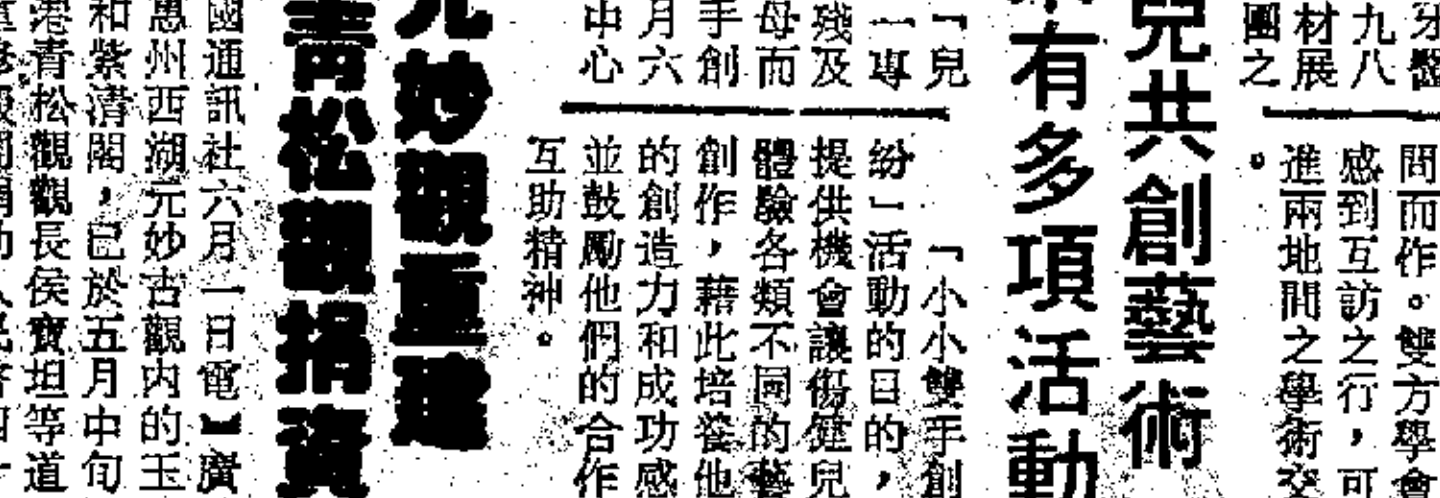 牙醫
九八
材展
團之
問而作。雙方學會
感到互訪之行，可
進兩地間之學術交
。
兒共創藝術
有多項活動
「兒
一專
殘及
母而
手創
月六
中心
「小小雙手創
紛」活動的目的，
提供機會讓傷健兒
體驗各類不同的藝
創作，藉此培養他
的創造力和成功感
並鼓勵他們的合作
互助精神。
元妙觀重建
青松觀捐資
國通訊社六月一日電】廣
惠州西湖元妙古觀內的玉
和紫清閣，已於五月中旬
港青松觀觀長侯寶坦等道